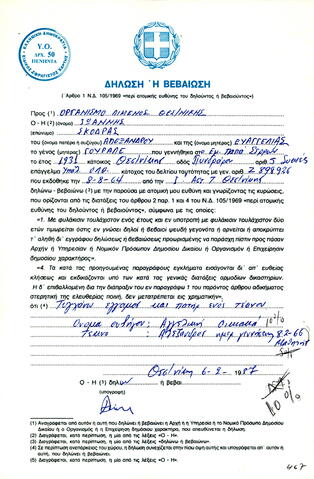 ΕΛΛΗΝΙΚΗ ΔΗΜΟΚΡΑΤΙΑ
Υ.Ο.
ΔΡΧ. 50
ΠΕΝΗΝΤΑ
ΔΗΛΩΣΗ Ή ΒΕΒΑΙΩΣΗ
(Άρθρο 1 Ν.Δ. 105/1969 «περί ατομικής ευθύνης του δηλούντος ή βεβαιούντος»)
Προς (1) ΟΡΓΑΝΙΣΜΟ ΛΙΜΕΝΟΣ ΘΕΣ/ΝΙΚΗΣ
Ο - Η (2) (όνομα) ΙΩΑΝΝΗΣ
(επώνυμο) ΣΚΟΔΡΑΣ
του (όνομα πατέρα ή συζύγου) ΑΛΕΞΑΝΔΡΟΥ και της (όνομα μητέρας) ΕΥΑΓΓΕΛΙΑΣ
το γένος (μητέρας) που γεννήθηκε
το έτος 1931 κάτοικος Θεσ/νίκης οδός αριθμ. 5
επάγγελμα κάτοχος του δελτίου ταυτότητας Ζ 898926
που εκδόθηκε την 8-8-64 από Θεσ/νίκης
δηλώνω - βεβαιώνω (3) με την παρούσα με ατομική μου ευθύνη και γνωρίζοντας τις κυρώσεις,
που ορίζονται από τις διατάξεις του άρθρου 2 παρ. 1 και 4 του Ν.Δ. 105/1969 «περί ατομικής
ευθύνης του δηλούντος ή βεβαιούντος», σύμφωνα με τις οποίες:
«1. Με φυλάκιση τουλάχιστον ενός έτους και αν υποτροπή με φυλάκιση τουλάχιστον δύο
ετών τιμωρείται όστις εν γνώσει δηλοί ή βεβαιοί ψευδή γεγονότα ή αρνείται ή αποκρύπτει
τ' αληθή δι' εγγράφου δηλώσεως ή βεβαιώσεως προωρισμένης να παράσχη πίστιν προς πάσαν
Αρχήν ή Υπηρεσίαν ή Νομικόν Πρόσωπον Δημοσίου Δικαίου ή Οργανισμόν ή Επιχείρησιν
δημοσίου χαρακτήρος».
«4. Τα κατά τας προηγουμένας παραγράφους εγκλήματα εισάγονται δι' απ' ευθείας
κλήσεως και εκδικάζονται υπό των κατά τας γενικάς διατάξεις αρμοδίων δικαστηρίων.
Η δ' επιβαλλομένη δια την διάπραξιν του εν παραγράφω 1 του παρόντος άρθρου αδικήματος
στερητική της ελευθερίας ποινή, δεν μετατρέπεται εις χρηματικήν»,
ότι (4) έγγαμος και ενός
Όνομα συζύγου: Αγγελική
Τέκνο : Αλέξανδρος ημερ. γεννήσεως 8-2-66
10%
Θεσ/νίκη 6-2-1987
Ο - Η (3) δηλών ή βεβαι
(υπογραφή)
10%
(1) (Αναγράφεται αυτού ή αυτή, που δηλώνει ή βεβαιώνει η Αρχή ή η Υπηρεσία ή το Νομικό Πρόσωπο Δημοσίου
Δικαίου ή ο Οργανισμός ή η Επιχείρηση δημοσίου χαρακτήρα, που απευθύνεται η δήλωση.
(2) Διαγράφεται, κατά περίπτωση, η μία από τις λέξεις «Ο - Η».
(3) Διαγράφεται, κατά περίπτωση, η μία από τις λέξεις «δηλώνω ή βεβαιώνω».
(4) Σε περίπτωση ανεπάρκειας του χώρου, η δήλωση συνεχίζεται στην πίσω όψη και υπογράφεται απ' αυτόν ή
αυτή, που δηλώνει ή βεβαιώνει.
(5) Διαγράφεται, κατά περίπτωση, η μία από τις λέξεις «Ο - Η».
467